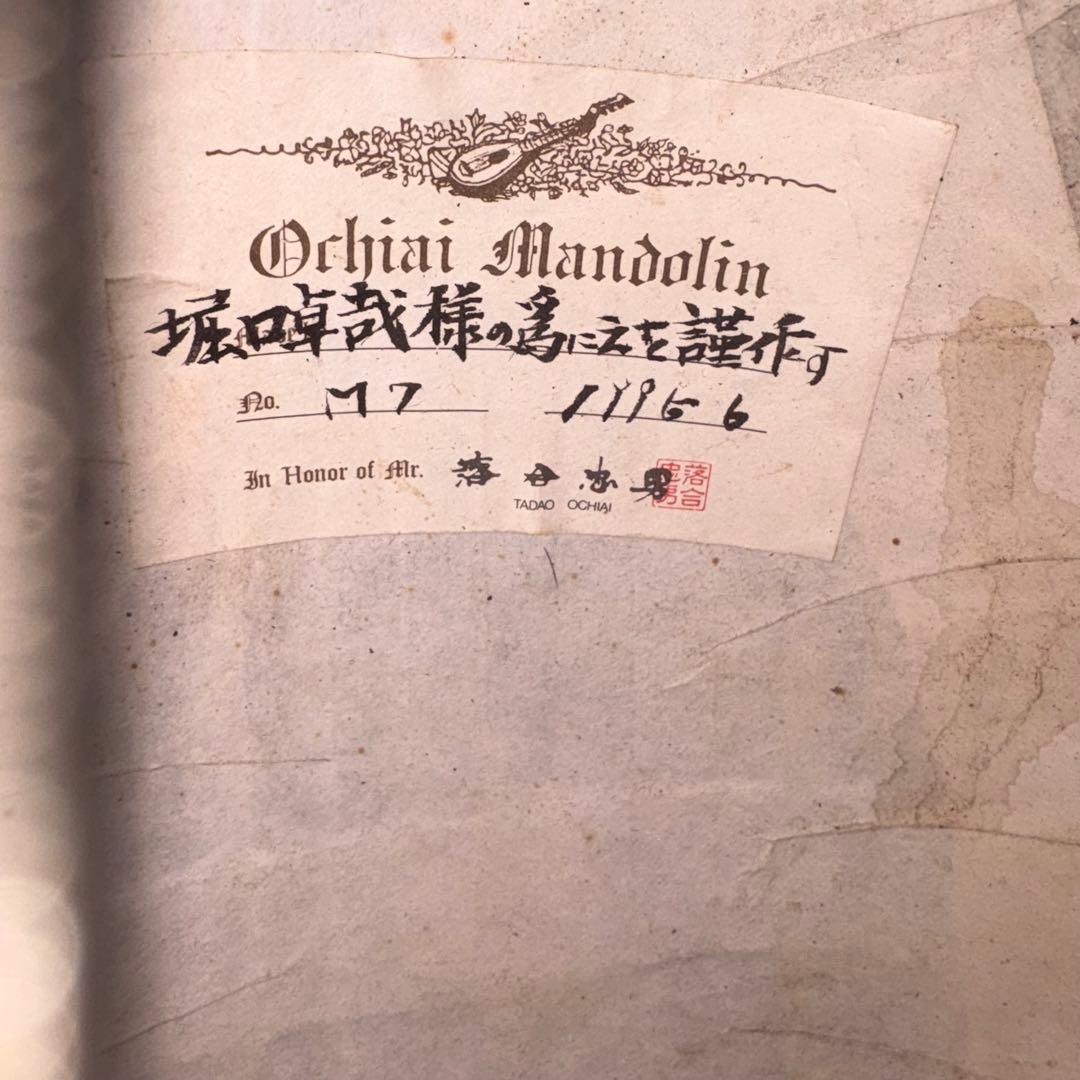 Ochiai Mandolin
堀口卓哉様の為に之を謹作す
No. M7 1995 6
In Honor of Mr. 落合忠男
TADAO OCHIAI
落合忠男